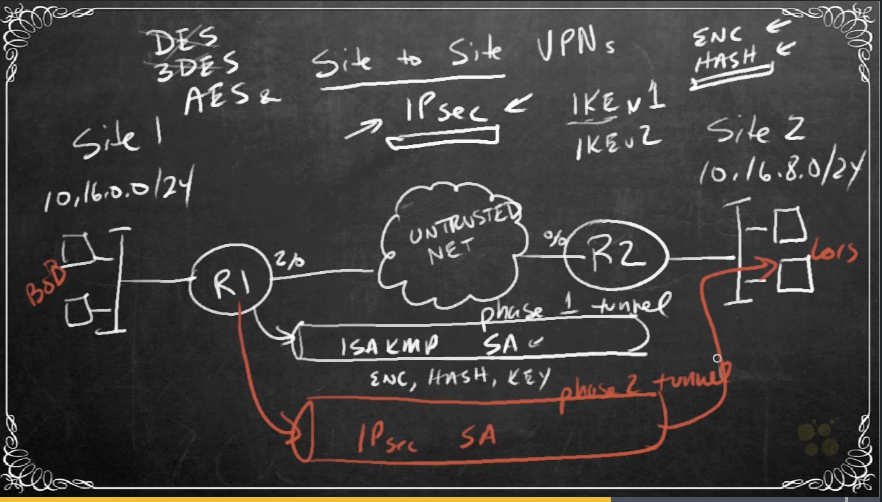 DES
3DES
AES
Site to Site VPNs
ENC
HASH
IPsec
IKE v1
IKE v2
Site 1
Site 2
10.16.0.0/24
10.16.8.0/24
UNTRUSTED
NET
BoB
R1
2/0
R2
Lois
phase 1 tunnel
ISAKMP SA
ENC, HASH, KEY
phase 2 tunnel
IPsec SA